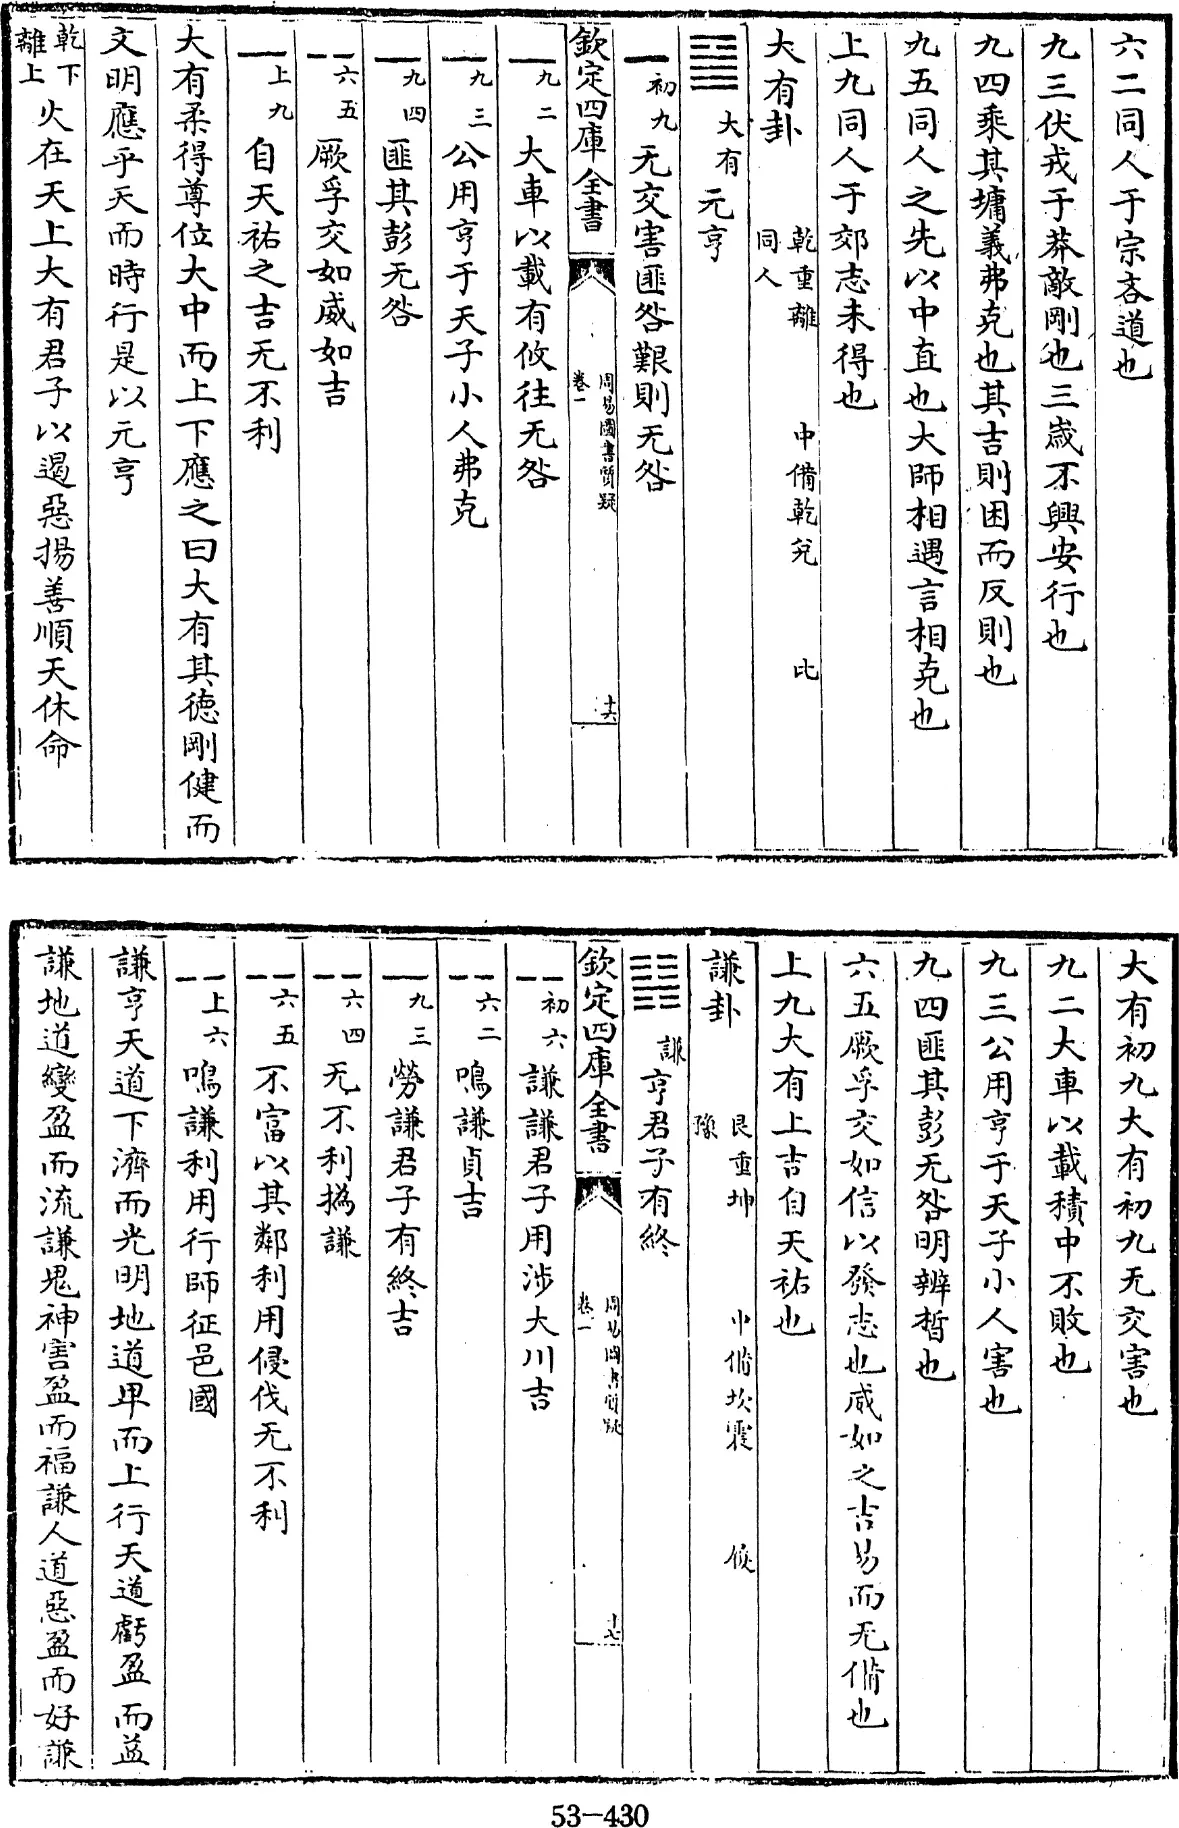 六二同人于宗吝道也
九三伏戎于莽敵剛也三歲不興安行也
九四乘其墉義弗克也其吉則困而反則也
九五同人之先以中直也大師相遇言相克也
上九同人于郊志未得也
大有卦 乾重離 中備乾兌 比
同人
䷍ 大有 元亨
初九 无交害匪咎艱則无咎
欽定四庫全書 周易圖書質疑 卷一 十六
九二 大車以載有攸往无咎
九三 公用亨于天子小人弗克
九四 匪其彭无咎
六五 厥孚交如威如吉
上九 自天祐之吉无不利
大有柔得尊位大中而上下應之曰大有其德剛健而
文明應乎天而時行是以元亨
乾下離上 火在天上大有君子以遏惡揚善順天休命
大有初九大有初九无交害也
九二大車以載積中不敗也
九三公用亨于天子小人害也
九四匪其彭无咎明辨晢也
六五厥孚交如信以發志也威如之吉易而无備也
上九大有上吉自天祐也
謙卦 艮重坤 中備坎震
豫
䷎ 謙 亨君子有終
欽定四庫全書 周易圖書質疑 卷一 十七
初六 謙謙君子用涉大川吉
六二 鳴謙貞吉
九三 勞謙君子有終吉
六四 无不利撝謙
六五 不富以其鄰利用侵伐无不利
上六 鳴謙利用行師征邑國
謙亨天道下濟而光明地道卑而上行天道虧盈而益
謙地道變盈而流謙鬼神害盈而福謙人道惡盈而好謙
53-430